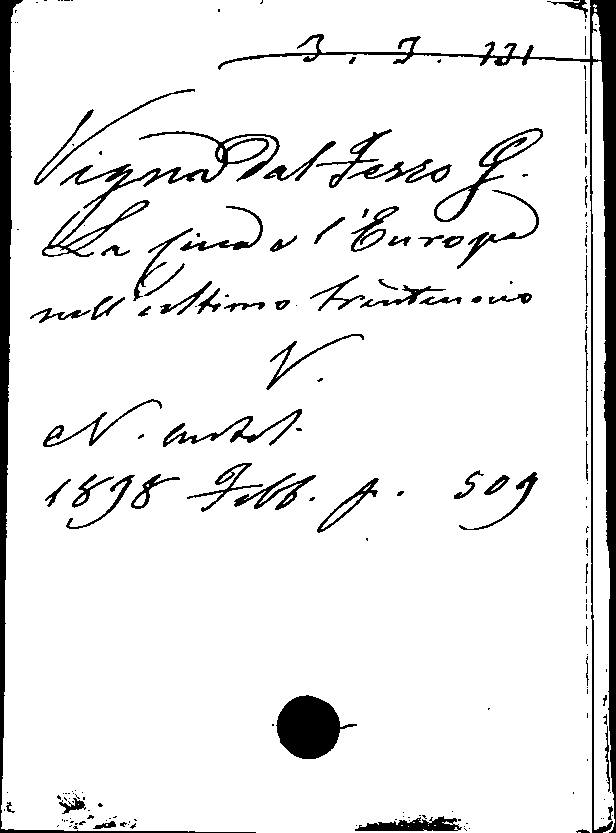 3. J. 131
Vigna dal Ferro G.
La Cina e l'Europa
nell'ultimo trentennio
V.
N. antol.
1898 Febb. p. 509